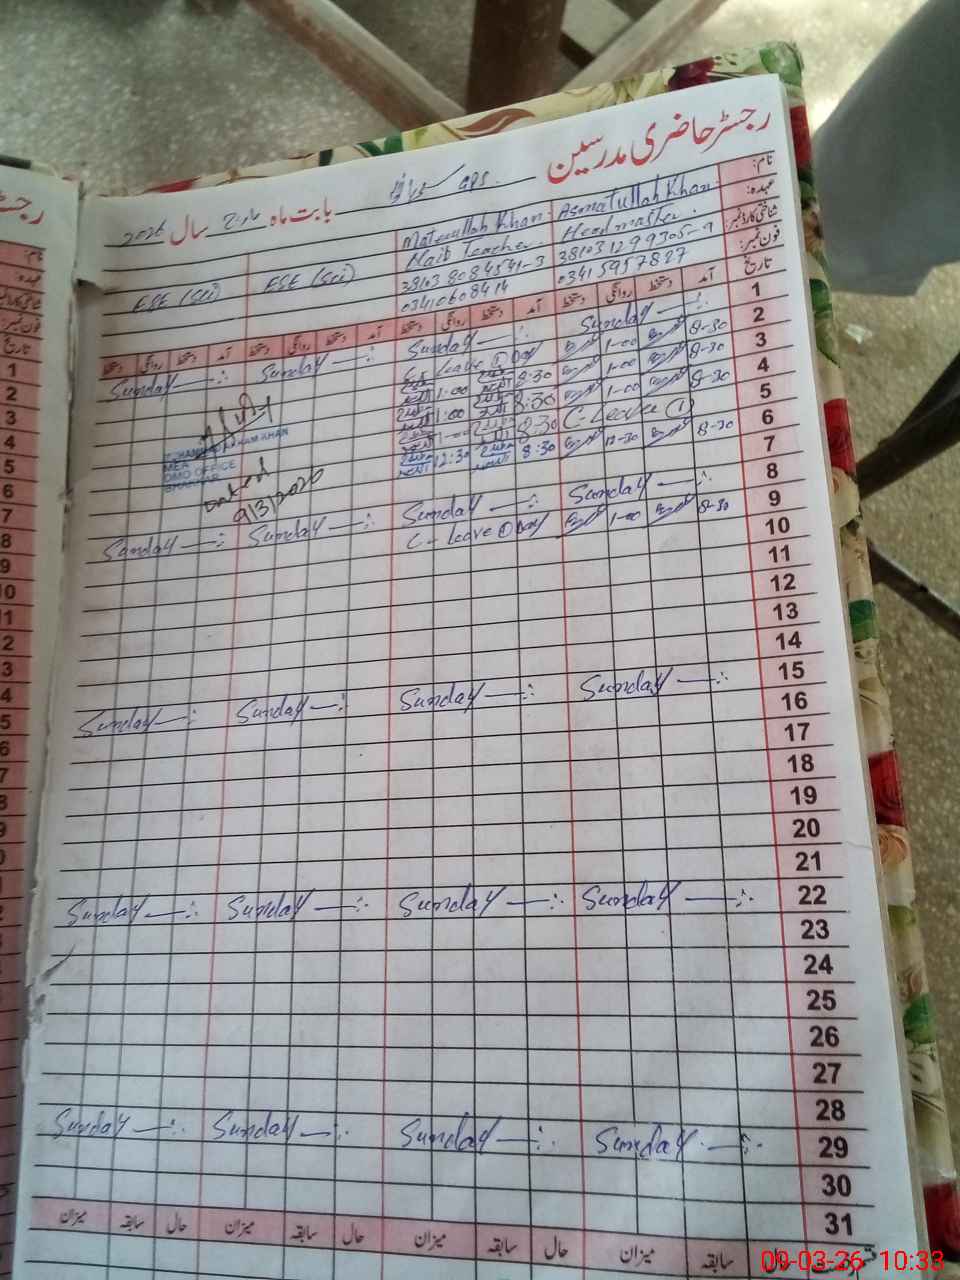 رجسٹر حاضری مدرسین
GPS.
بابت ماہ مارچ سال 2026
نام:
Asmatullah Khan.
Matiullah Khan.
عہدہ:
Headmaster.
Naib Teacher.
ESE (Sci)
ESE (Sci)
شناختی کارڈ نمبر:
38103 1299305-9
38103 8084541-3
فون نمبر:
0341 5957827
03410608414
تاریخ
آمد دستخط روانگی دستخط آمد دستخط روانگی دستخط آمد دستخط روانگی دستخط آمد دستخط روانگی دستخط
1 Sunday Sunday Sunday Sunday
2 8-30 1-00 C- Leave ① Day
3 8-30 1-00 8-30 1:00
4 8-30 1-00 8:30 1:00
5 C-Leave ① 8:30 1-00
6 8-30 12-30 8-30 12:30
7
8 Sunday Sunday Sunday Sunday
9 8-30 1-00 C- Leave ① Day
10
11
12
13
14
15 Sunday Sunday Sunday Sunday
16
17
18
19
20
21
22 Sunday Sunday Sunday Sunday
23
24
25
26
27
28
29 Sunday Sunday Sunday Sunday
30
31
حال سابقہ میزان حال سابقہ میزان حال سابقہ میزان حال سابقہ میزان
KHAN
MEA
DMO OFFICE
BHAKKAR
Dated
9/3/2020
09-03-26 10:33